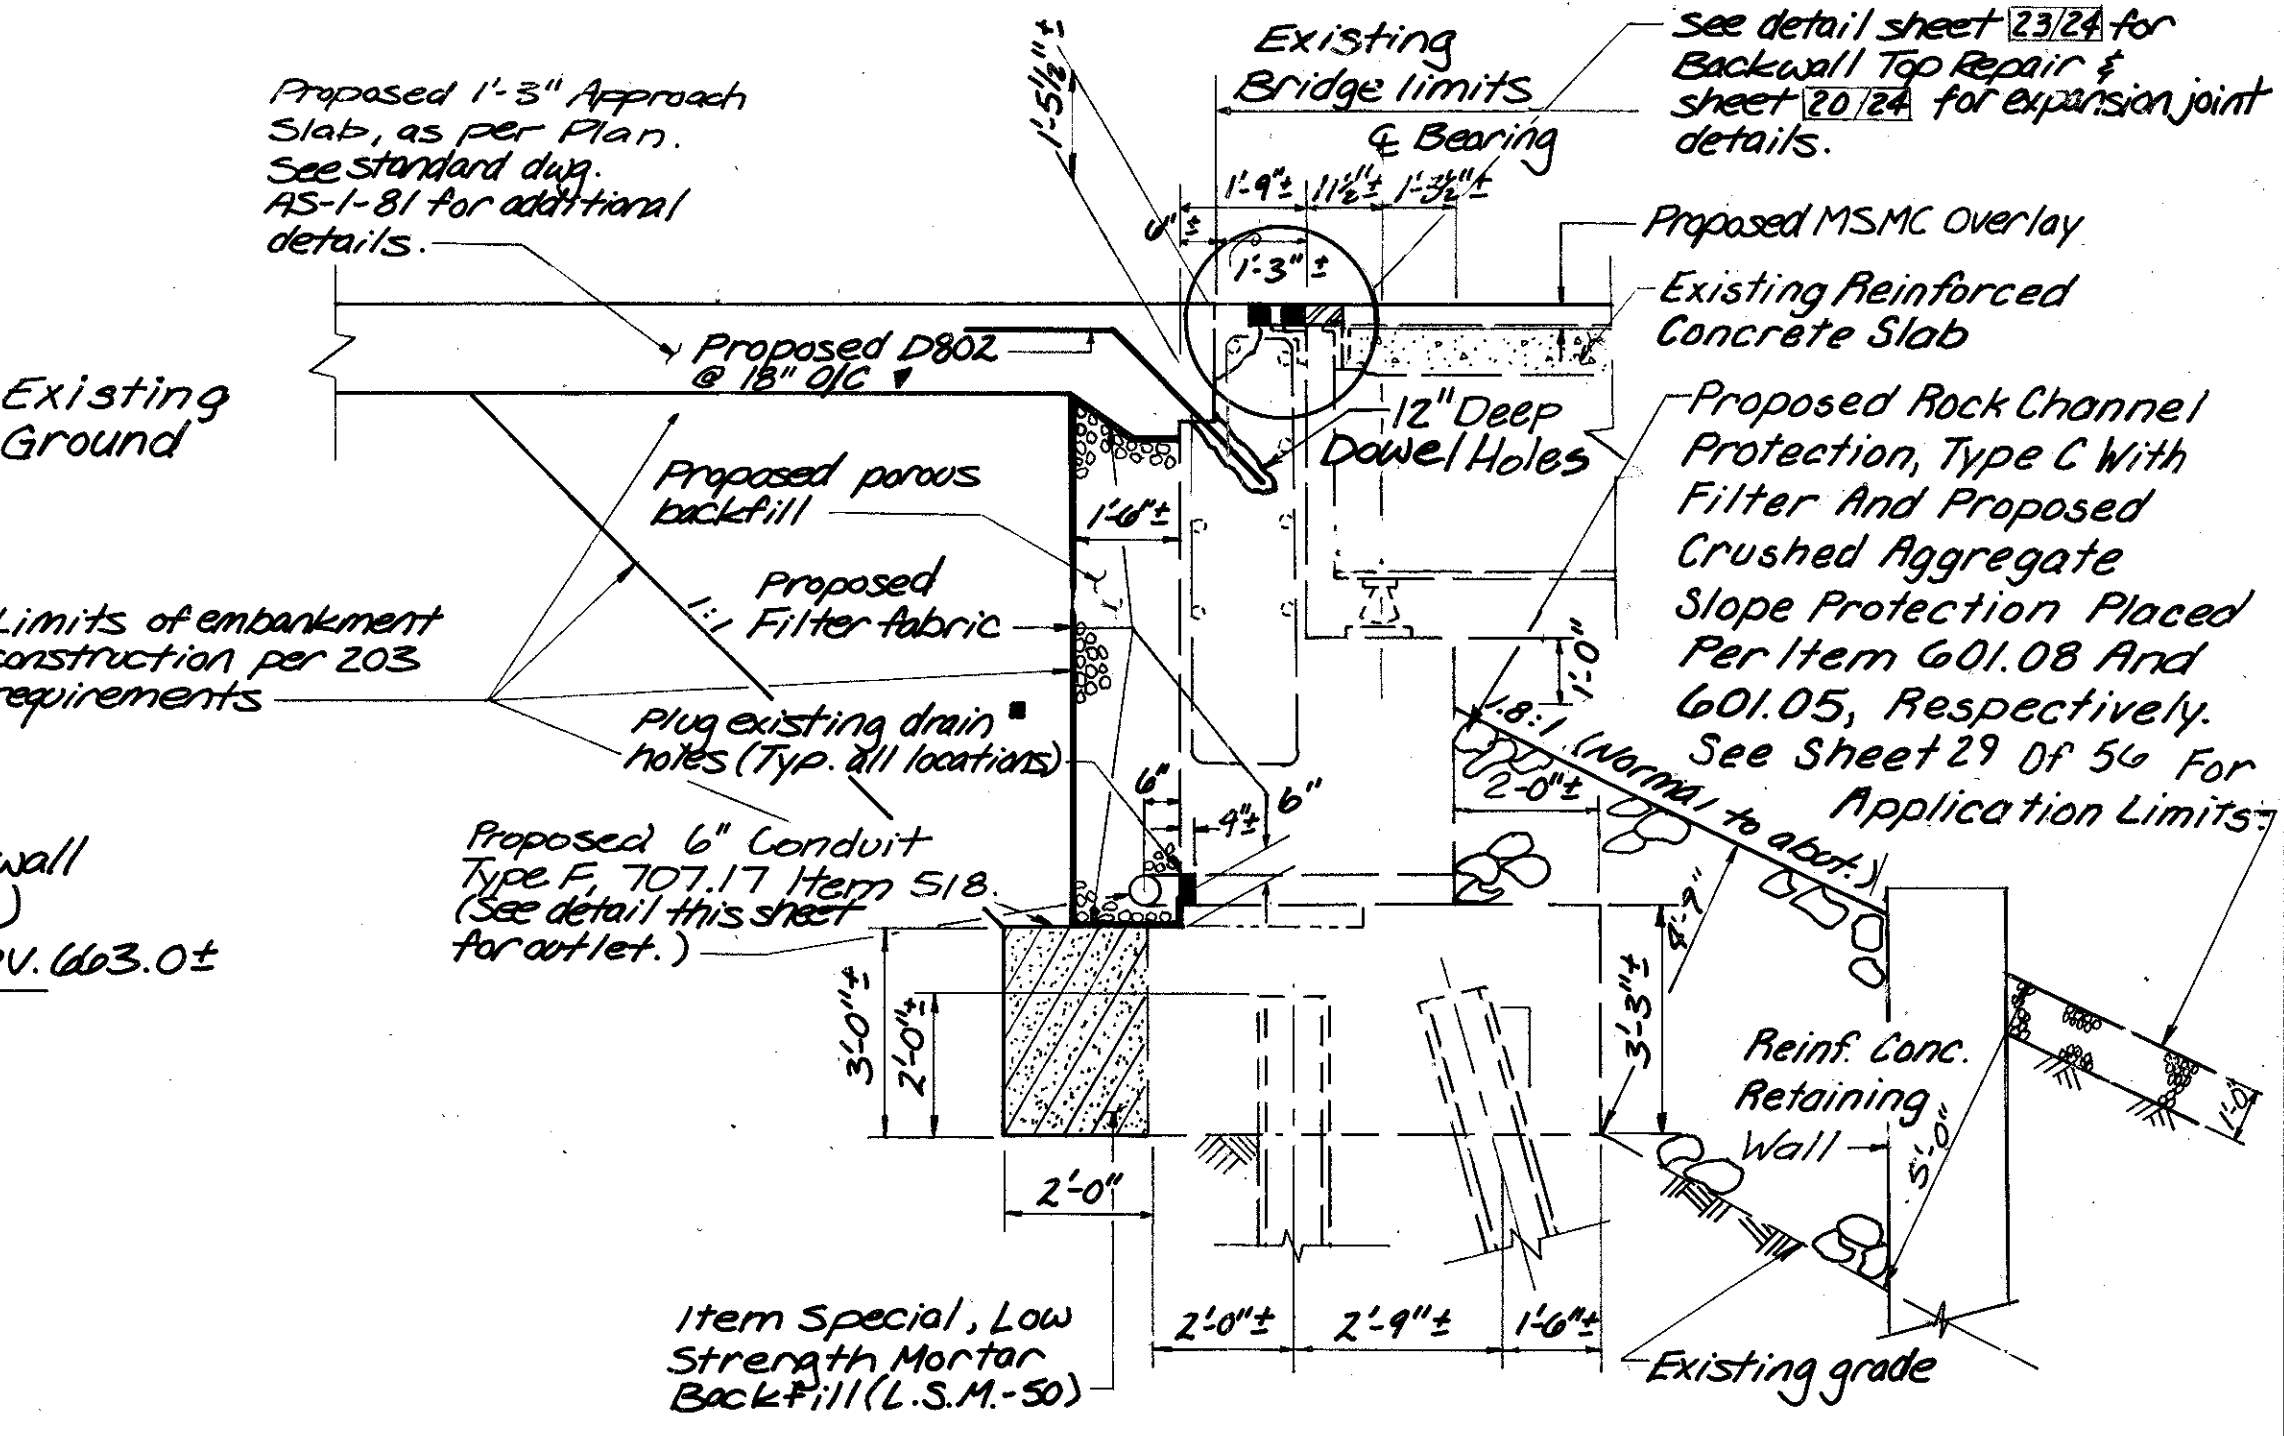 Proposed 1'-3" Approach
Slab, as per Plan.
See standard dwg.
AS-1-81 for additional
details.
1'-5½"±
Existing
Bridge limits
℄ Bearing
See detail sheet 23/24 for
Backwall Top Repair &
sheet 20/24 for expansion joint
details.
1'-9"±
11½"±
1'-3½"±
6"±
1'-3"±
Proposed MSMC Overlay
Existing Reinforced
Concrete Slab
Proposed D802
@ 18" O/C ▼
Existing
Ground
12" Deep
Dowel Holes
Proposed Rock Channel
Protection, Type C With
Filter And Proposed
Crushed Aggregate
Slope Protection Placed
Per Item 601.08 And
601.05, Respectively.
See Sheet 29 Of 56 For
Application Limits.
Proposed porous
backfill
1'-6"±
Proposed
Filter fabric
1:1
Limits of embankment
construction per 203
requirements
1'-0"
Plug existing drain ■
holes (Typ. all locations)
1.8:1 (Normal to abut.)
2'-0"±
6"
4"±
6"
Proposed 6" Conduit
Type F, 707.17 Item 518.
(See detail this sheet
for outlet.)
wall
)
V. 663.0±
4'-9"
3'-3"±
3'-0"±
2'-0"±
Reinf. Conc.
Retaining
Wall
5'-0"
1'-0"
2'-0"
Item Special, Low
Strength Mortar
Backfill (L.S.M.-50)
2'-0"±
2'-9"±
1'-6"±
Existing grade